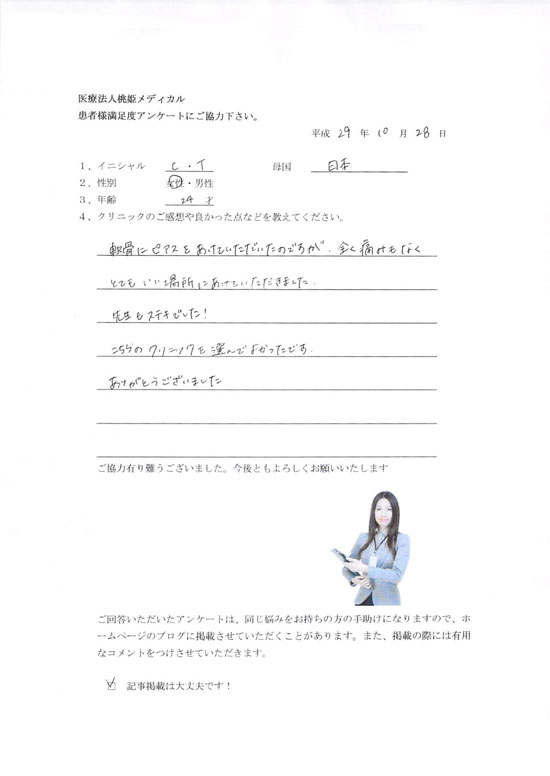 医療法人桃姫メディカル
患者様満足度アンケートにご協力下さい。
平成 29 年 10 月 28 日
1、イニシャル C・T 母国 日本
2、性別 女性・男性
3、年齢 24 才
4、クリニックのご感想や良かった点などを教えてください。
軟骨にピアスをあけていただいたのですが、全く痛みもなく
とてもいい場所にあけていただきました。
先生もステキでした!
こちらのクリニックを選んでよかったです。
ありがとうございました
ご協力有り難うございました。今後ともよろしくお願いいたします
ご回答いただいたアンケートは、同じ悩みをお持ちの方の手助けになりますので、ホ
ームページのブログに掲載させていただくことがあります。また、掲載の際には有用
なコメントをつけさせていただきます。
☑ 記事掲載は大丈夫です!